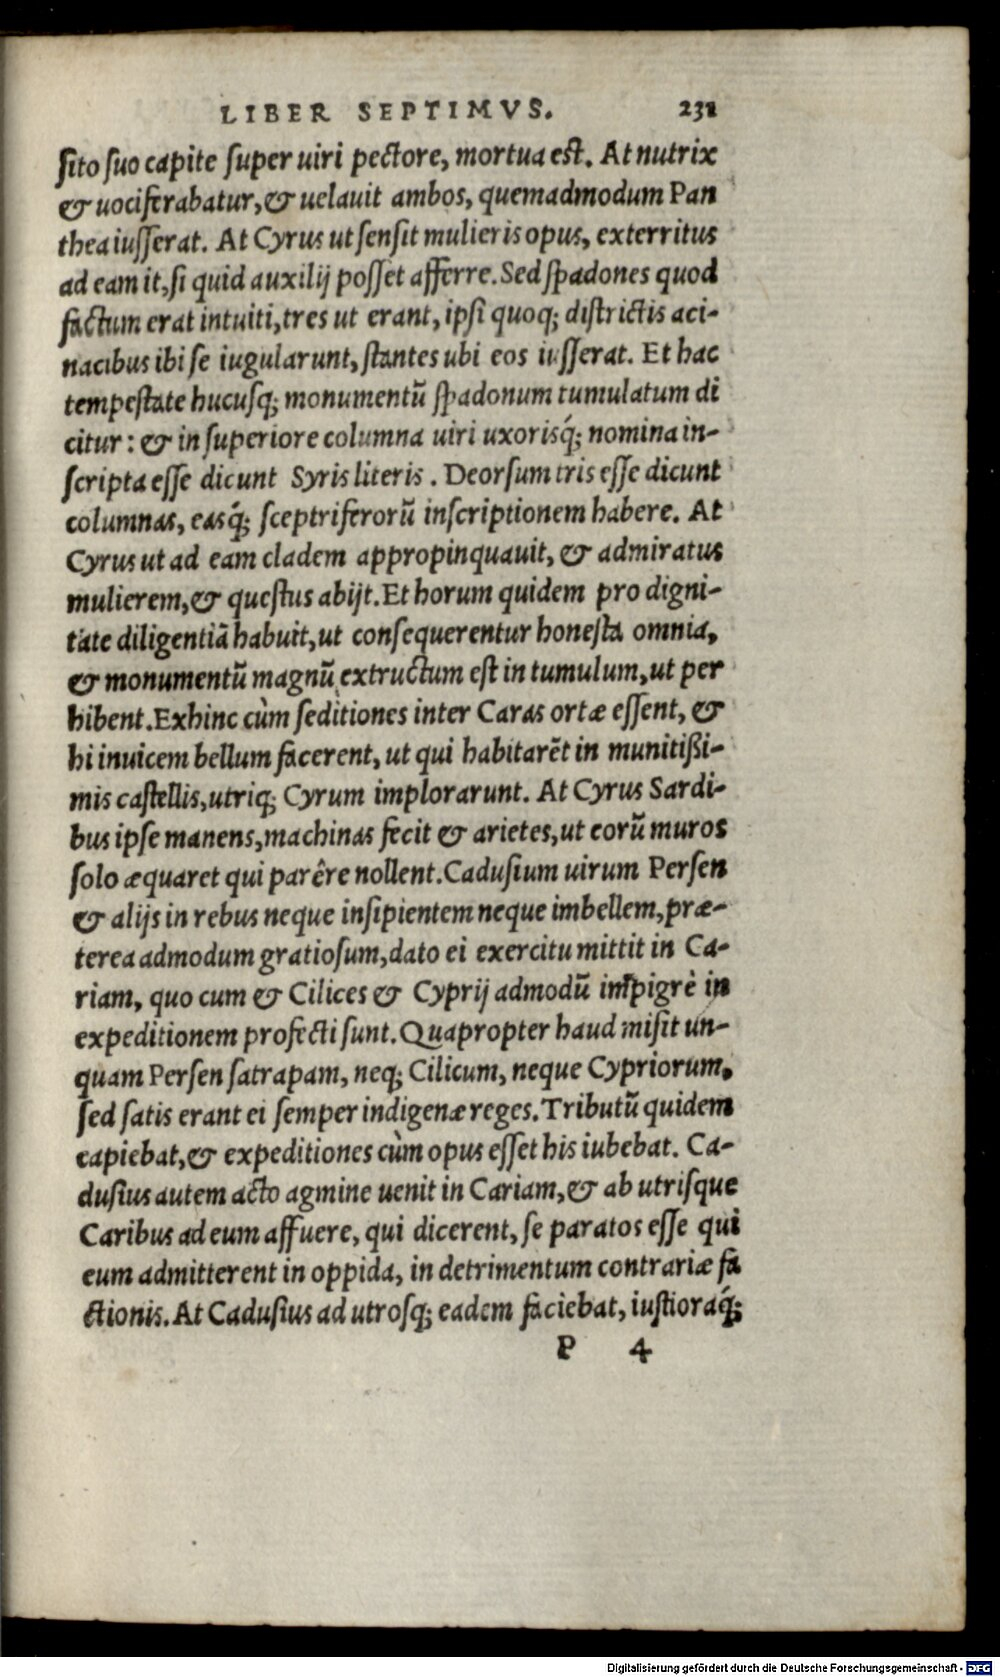 LIBER SEPTIMVS. 231
ſito ſuo capite ſuper uiri pectore, mortua eſt. At nutrix
& uociferabatur, & uelauit ambos, quemadmodum Pan
thea iuſſerat. At Cyrus ut ſenſit mulieris opus, exterritus
ad eam it, ſi quid auxilij poſſet afferre. Sed ſpadones quod
factum erat intuiti, tres ut erant, ipſi quoq; diſtrictis aci-
nacibus ibi ſe iugularunt, ſtantes ubi eos iuſſerat. Et hac
tempeſtate hucuſq; monumentũ ſpadonum tumulatum di
citur: & in ſuperiore columna uiri uxoriſq́; nomina in-
ſcripta eſſe dicunt Syris literis. Deorſum tris eſſe dicunt
columnas, easq́; ſceptriferorũ inſcriptionem habere. At
Cyrus ut ad eam cladem appropinquauit, & admiratus
mulierem, & queſtus abijt. Et horum quidem pro digni-
tate diligentiã habuit, ut conſequerentur honeſta omnia,
& monumentũ magnũ extructum eſt in tumulum, ut per
hibent. Exhinc cùm ſeditiones inter Caras ortæ eſſent, &
hi inuicem bellum facerent, ut qui habitarẽt in munitißi-
mis caſtellis, utriq; Cyrum implorarunt. At Cyrus Sardi-
bus ipſe manens, machinas fecit & arietes, ut eorũ muros
ſolo æquaret qui parêre nollent. Caduſium uirum Perſen
& alijs in rebus neque inſipientem neque imbellem, præ-
terea admodum gratioſum, dato ei exercitu mittit in Ca-
riam, quo cum & Cilices & Cyprij admodũ impigrè in
expeditionem profecti ſunt. Quapropter haud miſit un-
quam Perſen ſatrapam, neq; Cilicum, neque Cypriorum,
ſed ſatis erant ei ſemper indigenæ reges. Tributũ quidem
capiebat, & expeditiones cùm opus eſſet his iubebat. Ca-
duſius autem acto agmine uenit in Cariam, & ab utriſque
Caribus ad eum affuere, qui dicerent, ſe paratos eſſe qui
eum admitterent in oppida, in detrimentum contrariæ fa
ctionis. At Caduſius ad utroſq; eadem faciebat, iuſtioraq́;
P 4
Digitalisierung gefördert durch die Deutsche Forschungsgemeinschaft - DFG